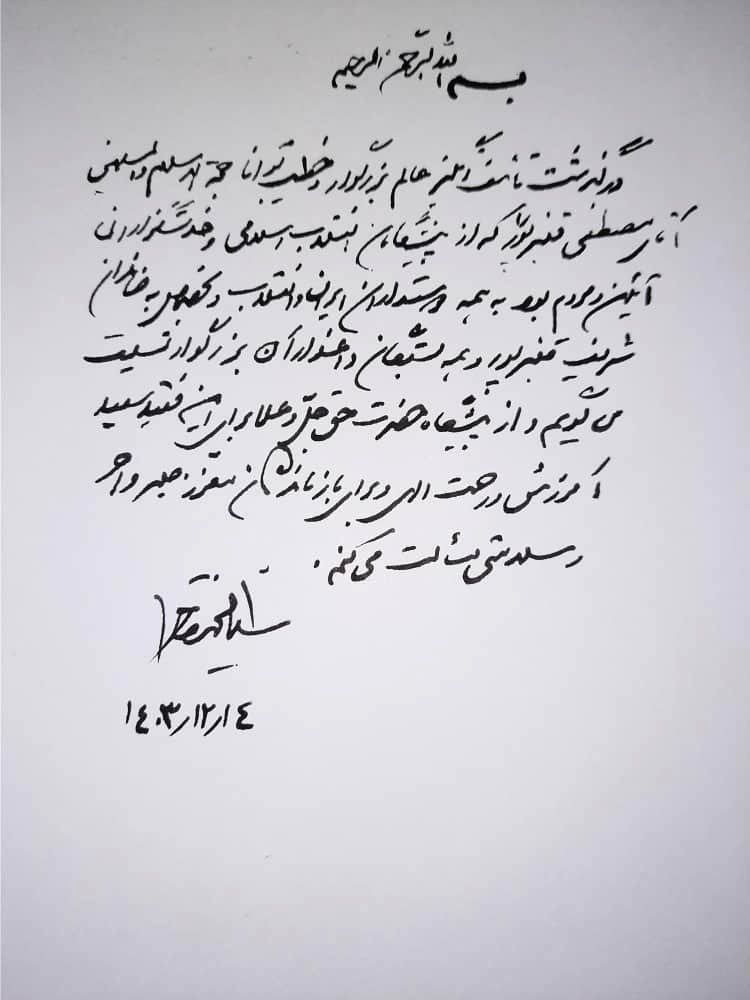 بسم الله الرحمن الرحیم
درگذشت تأسف انگیز عالم بزرگوار و خطیب توانا حجة الاسلام والمسلمین
آقای مصطفی قنبرپور که از پیشگامان انقلاب اسلامی و خدمتگزاران
آئین و مردم بود به همه دوستداران ایران و انقلاب و بخصوص به خاندان
شریف قنبرپور و همه بستگان داغدار آن بزرگوار تسلیت
می گویم و از پیشگاه حضرت حق جلّ و علا برای این فقید سعید
آمرزش و رحمت الهی و برای بازماندگان معزز صبر و اجر
و سلامتی مسألت می کنم.
۱٤۰۳٫۱۲٫۱٤